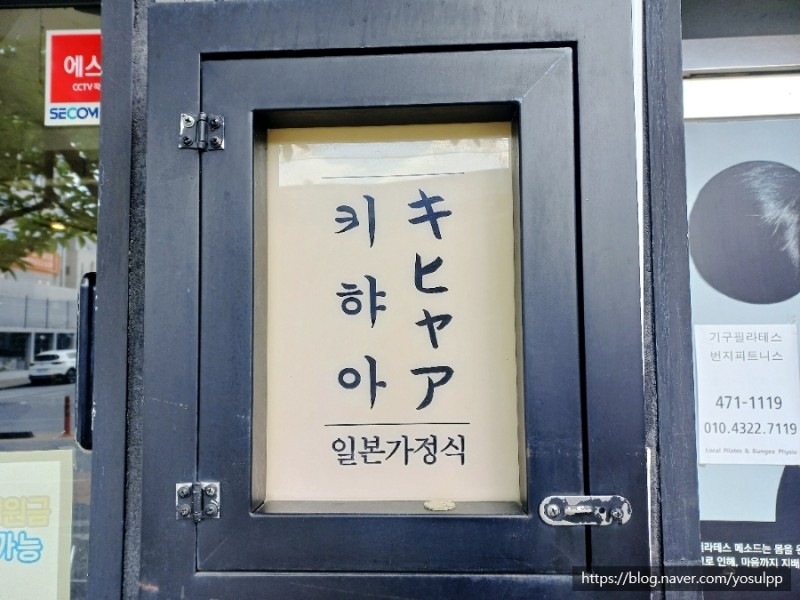 에스
CCTV
SECOM
키햐아
キヒヤア
일본가정식
기구필라테스
번지피트니스
471-1119
010.4322.7119
Local Pilates & Bungee Physio
필라테스 메소드는 몸을
로 인해, 마음까지 지배
원금
가능
https://blog.naver.com/yosulpp